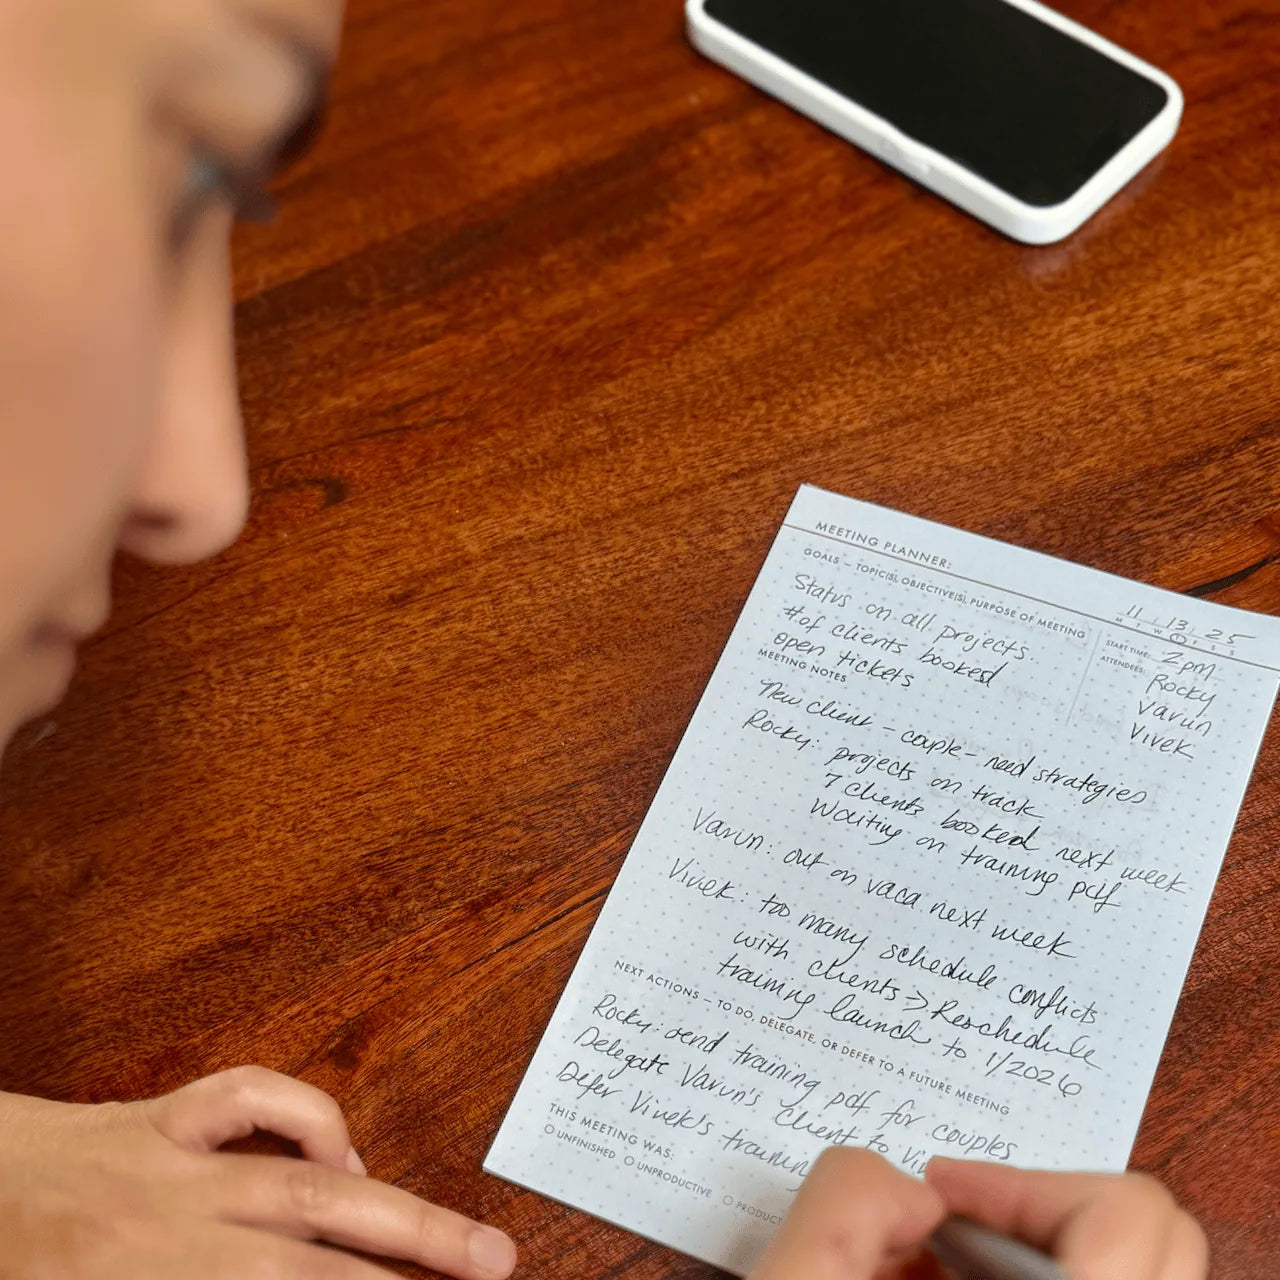 MEETING PLANNER:
11 / 13 / 25
M T W T F S S
GOALS – TOPIC(S), OBJECTIVE(S), PURPOSE OF MEETING
Status on all projects.
# of clients booked
open tickets
START TIME: 2pm
ATTENDEES: Rocky
Varun
Vivek
MEETING NOTES
New client – couple – need strategies
Rocky: projects on track
7 clients booked next week
Waiting on training pdf
Varun: out on vaca next week
Vivek: too many schedule conflicts
with clients → Reschedule
training launch to 1/2026
NEXT ACTIONS – TO DO, DELEGATE, OR DEFER TO A FUTURE MEETING
Rocky: send training pdf for couples
Delegate Varun's client to
Defer Vivek's training
THIS MEETING WAS:
UNFINISHED UNPRODUCTIVE PRODUCT